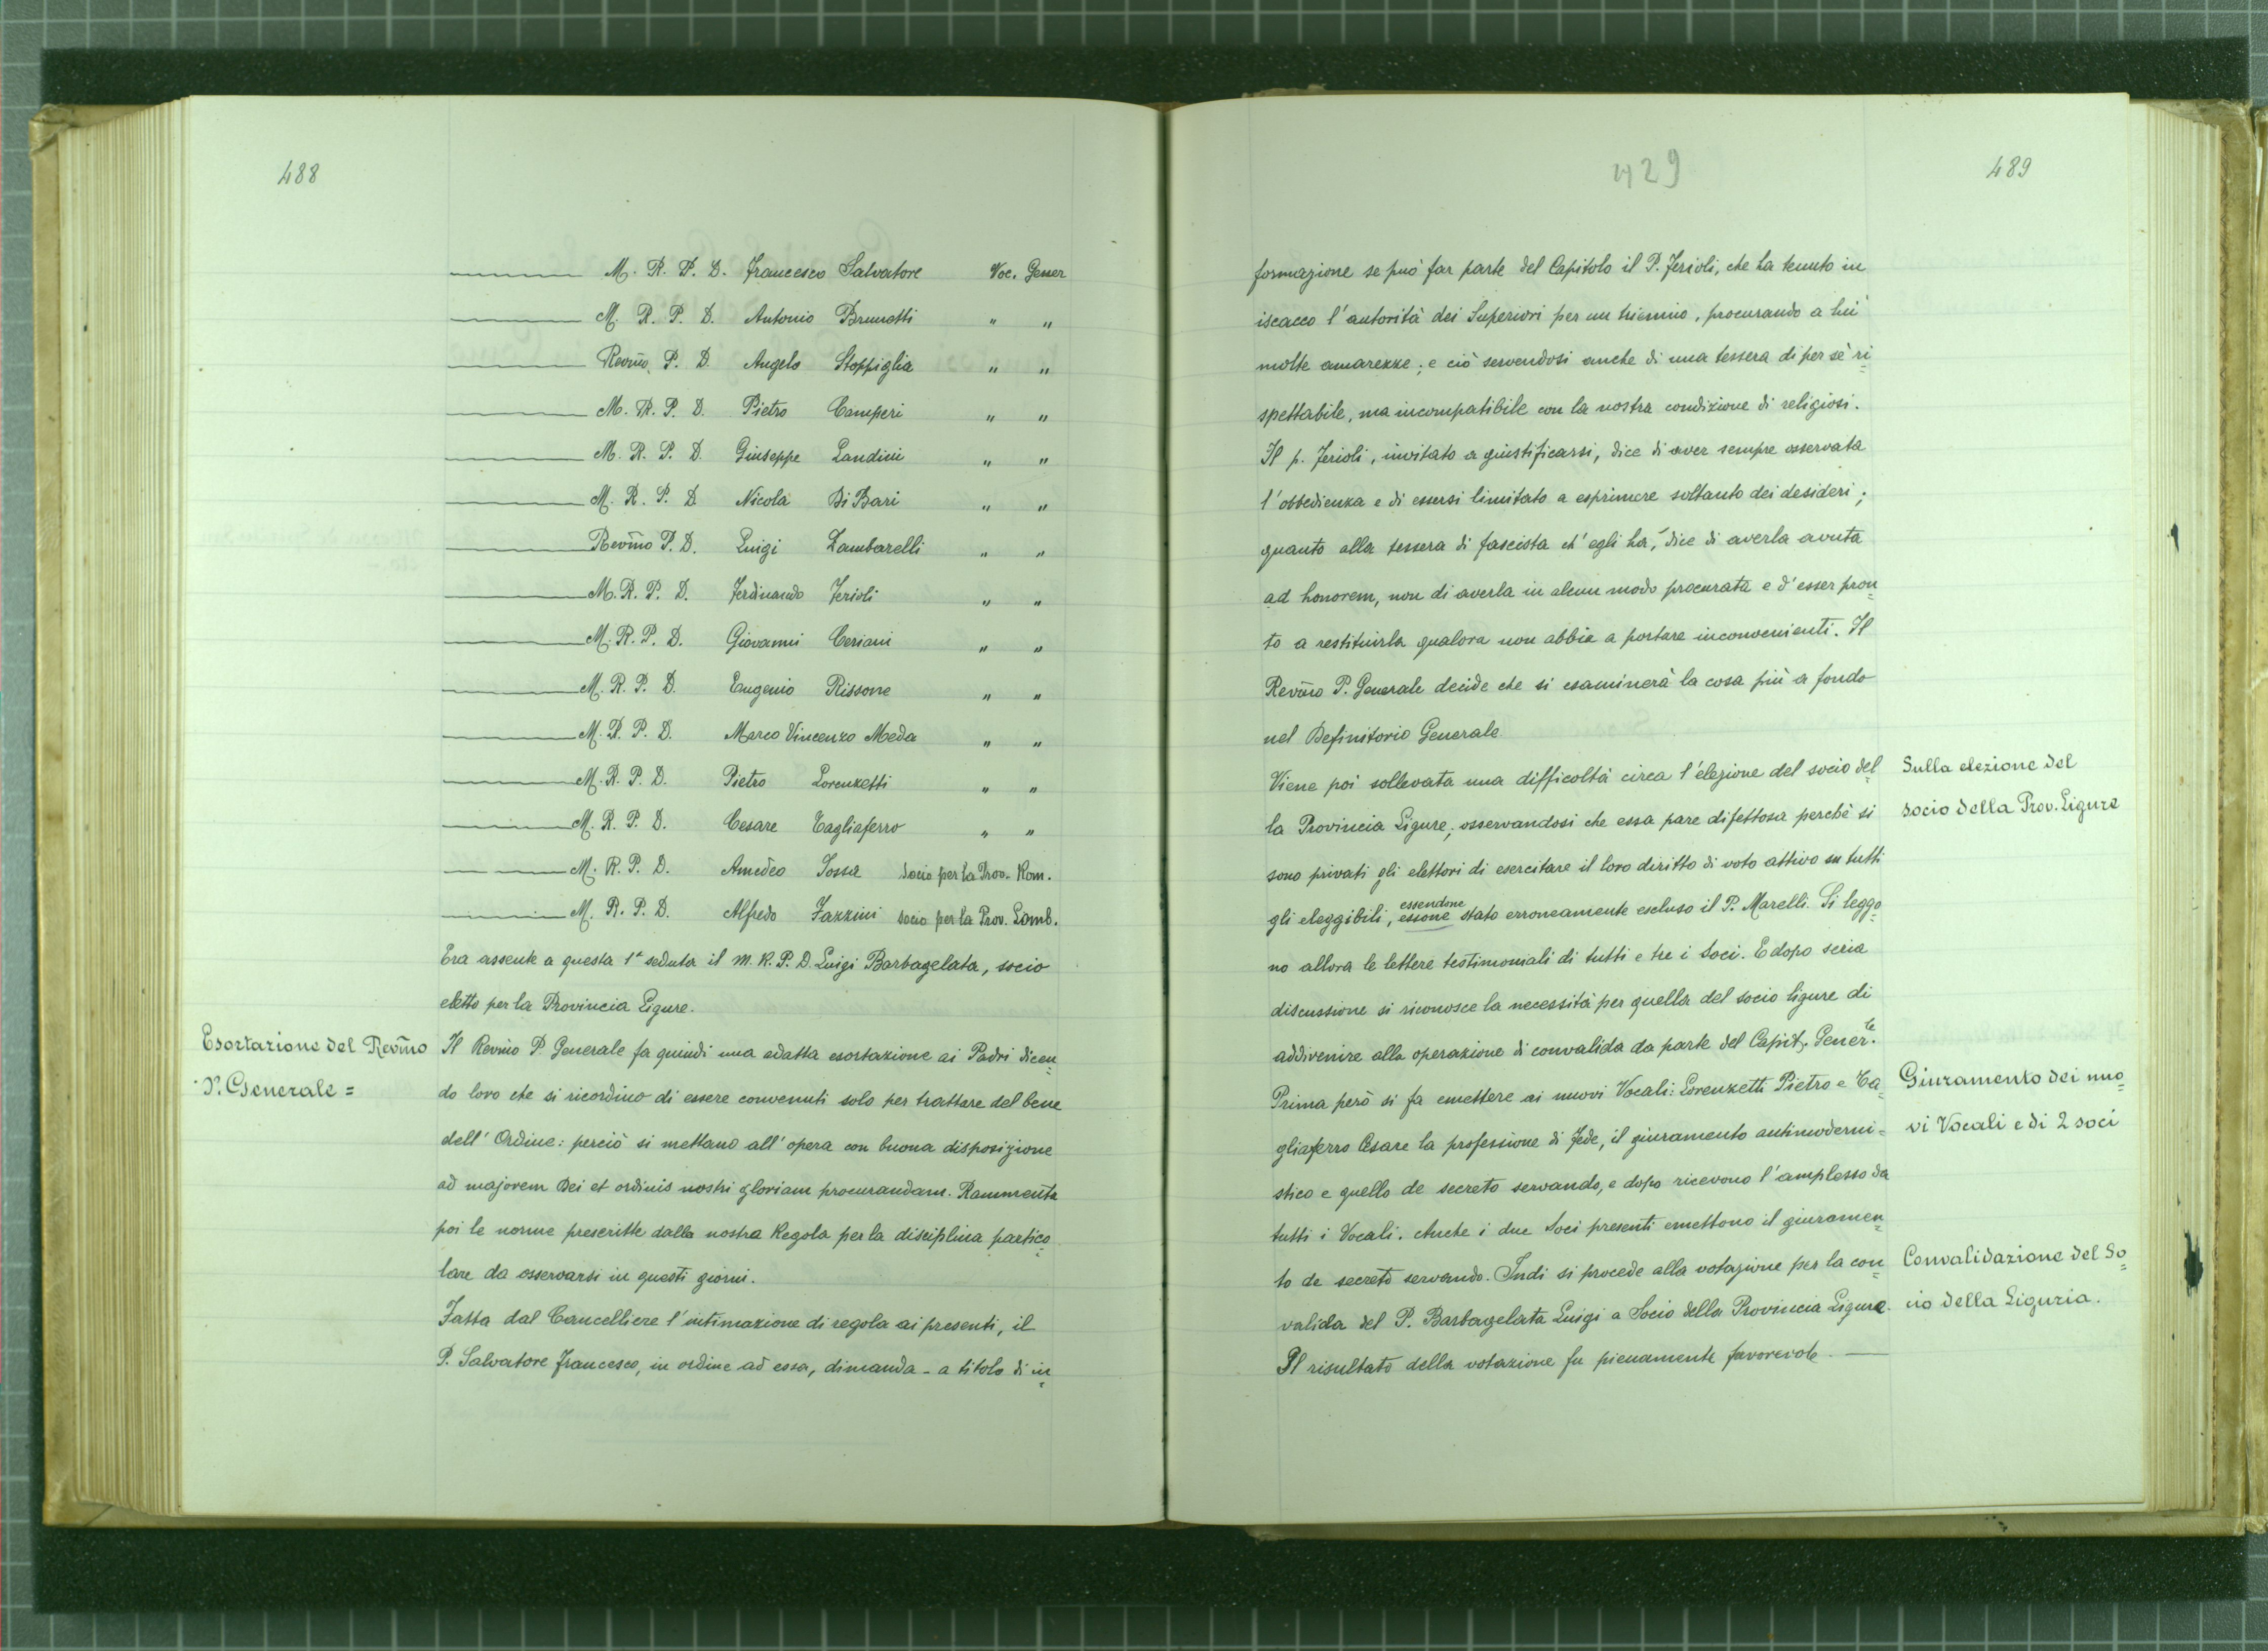 488
——— M. R. P. D. Francesco Salvatore Voc. Gener
——— M. R. P. D. Antonio Brunetti " "
——— Revm̃o P. D. Angelo Stoppiglia " "
——— M. R. P. D. Pietro Camperi " "
——— M. R. P. D. Giuseppe Landini " "
——— M. R. P. D. Nicola Di Bari " "
——— Revm̃o P. D. Luigi Zambarelli " "
——— M. R. P. D. Ferdinando Ferioli " "
——— M. R. P. D. Giovanni Ceriani " "
——— M. R. P. D. Eugenio Rissone " "
——— M. R. P. D. Marco Vincenzo Meda " "
——— M. R. P. D. Pietro Lorenzetti " "
——— M. R. P. D. Cesare Tagliaferro " "
——— M. R. P. D. Amedeo Fossa socio per la Prov. Rom.
——— M. R. P. D. Alfredo Fazzini socio per la Prov. Lomb.
Era assente a questa 1ª seduta il M. R. P. D. Luigi Barbagelata, socio
eletto per la Provincia Ligure.
Esortazione del Revm̃o
P. Generale =
Il Revm̃o P. Generale fa quindi una adatta esortazione ai Padri dicen=
do loro che si ricordino di essere convenuti solo per trattare del bene
dell' Ordine: perciò si mettano all' opera con buona disposizione
ad majorem Dei et ordinis nostri gloriam procurandam. Rammenta
poi le norme prescritte dalla nostra Regola per la disciplina partico=
lare da osservarsi in questi giorni.
Fatta dal Cancelliere l'intimazione di regola ai presenti, il
P. Salvatore Francesco, in ordine ad essa, dimanda - a titolo di in=
429
489
formazione se può far parte del Capitolo il P. Ferioli, che ha tenuto in
iscacco l'autorità dei Superiori per un triennio, procurando a lui
molte amarezze; e ciò servendosi anche di una tessera di per sè ri=
spettabile, ma incompatibile con la nostra condizione di religiosi.
Il p. Ferioli, invitato a giustificarsi, dice di aver sempre osservata
l'obbedienza e di essersi limitato a esprimere soltanto dei desideri;
quanto alla tessera di fascista ch'egli ha, dice di averla avuta
ad honorem, non di averla in alcun modo procurata e d'esser pron=
to a restituirla qualora non abbia a portare inconvenienti. Il
Revm̃o P. Generale decide che si esaminerà la cosa più a fondo
nel Definitorio Generale.
Viene poi sollevata una difficoltà circa l'elezione del socio del=
la Provincia Ligure; osservandosi che essa pare difettosa perchè si
sono privati gli elettori di esercitare il loro diritto di voto attivo su tutti
gli eleggibili, essone essendone stato erroneamente escluso il P. Marelli. Si leggo=
no allora le lettere testimoniali di tutti e tre i Soci. E dopo seria
discussione si riconosce la necessità per quella del socio ligure di
addivenire alla operazione di convalida da parte del Capit. Gener.le
Prima però si fa emettere ai nuovi Vocali: Lorenzetti Pietro e Ta=
gliaferro Cesare la professione di Fede, il giuramento antimoderni=
stico e quello de secreto servando, e dopo ricevono l'amplesso da
tutti i Vocali. Anche i due Soci presenti emettono il giuramen=
to de secreto servando. Indi si procede alla votazione per la con=
valida del P. Barbagelata Luigi a Socio della Provincia Ligure.
Il risultato della votazione fu pienamente favorevole. —
Sulla elezione del
socio della Prov. Ligure
Giuramento dei nuo=
vi Vocali e di 2 soci
Convalidazione del So=
cio della Liguria.